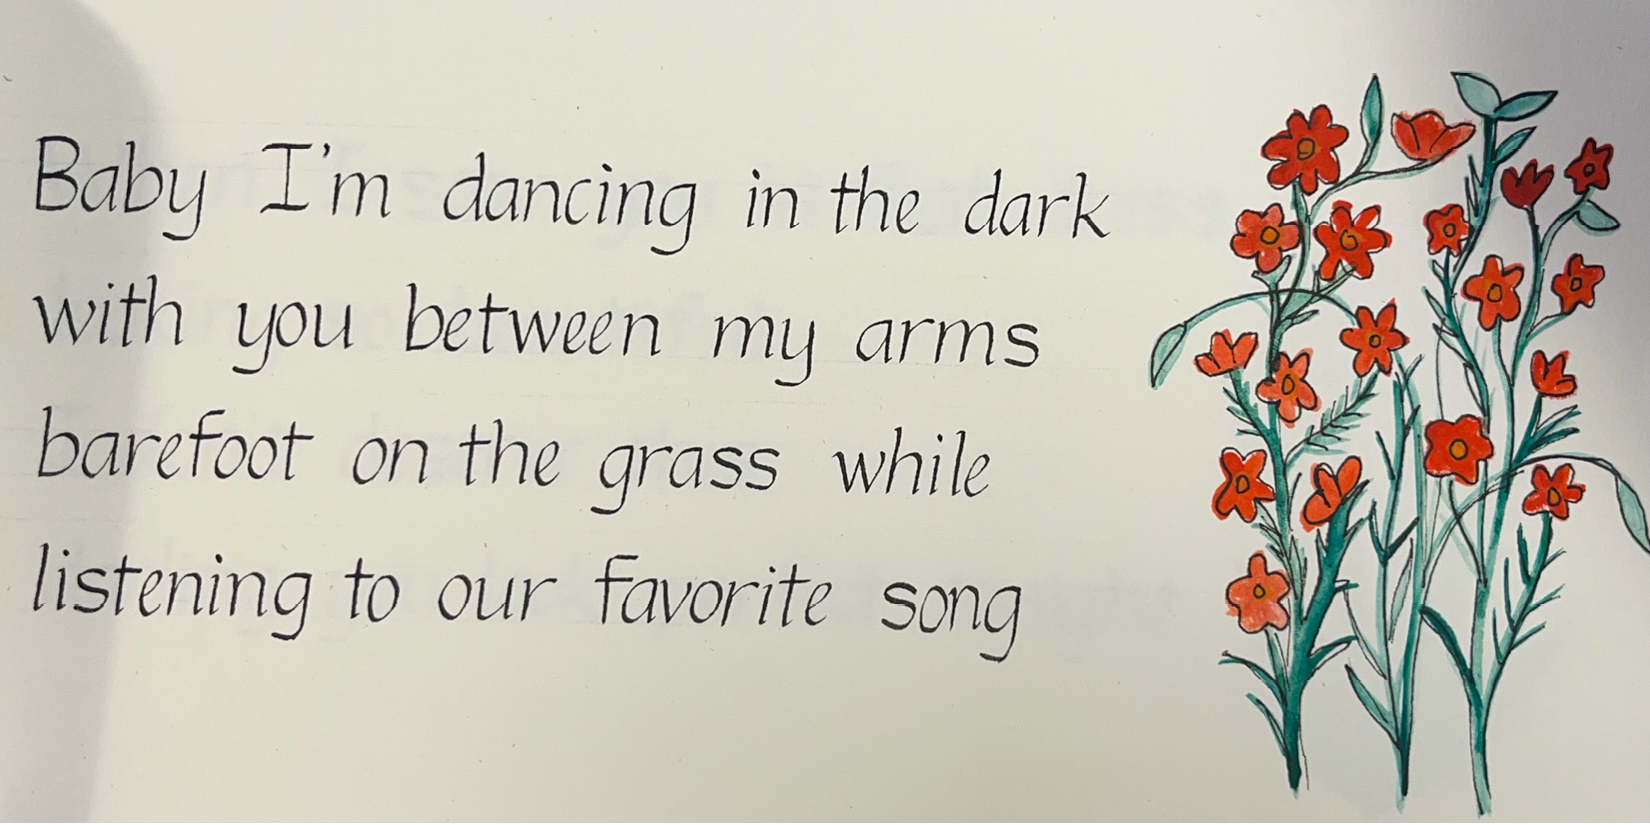 Baby I'm dancing in the dark
with you between my arms
barefoot on the grass while
listening to our favorite song